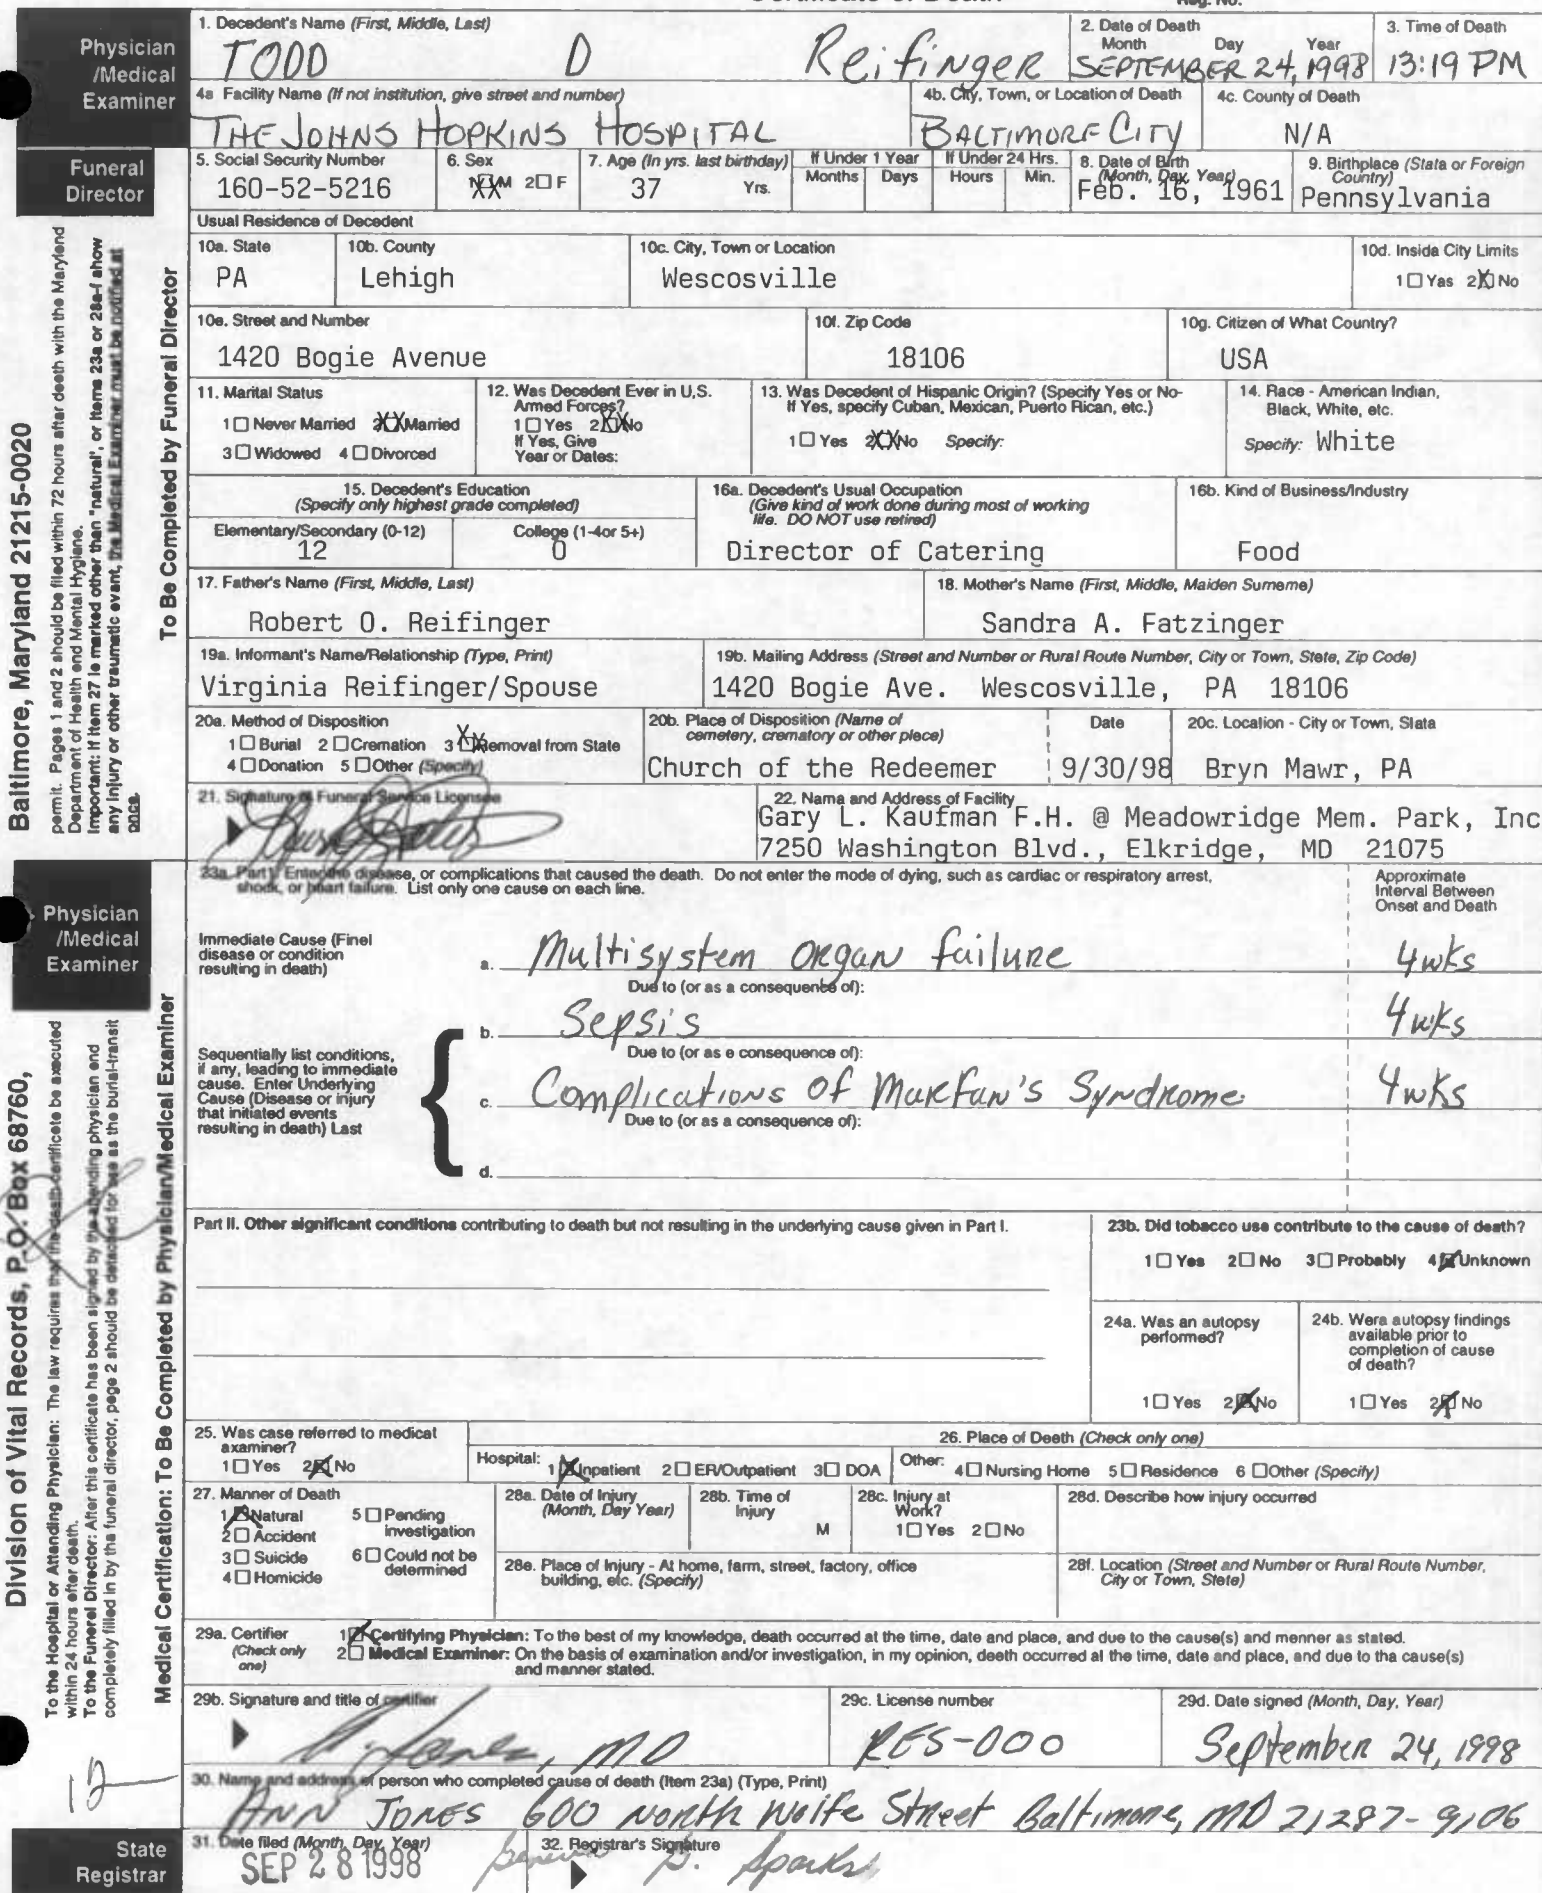 Physician
/Medical
Examiner
1. Decedent's Name (First, Middle, Last)
TODD D Reifinger
2. Date of Death
Month Day Year
SEPTEMBER 24, 1998
3. Time of Death
13:19 PM
4a Facility Name (If not institution, give street and number)
THE JOHNS HOPKINS HOSPITAL
4b. City, Town, or Location of Death
BALTIMORE CITY
4c. County of Death
N/A
Funeral
Director
5. Social Security Number
160-52-5216
6. Sex
M 2☐ F
7. Age (In yrs. last birthday)
37 Yrs.
If Under 1 Year
Months Days
If Under 24 Hrs.
Hours Min.
8. Date of Birth
(Month, Day, Year)
Feb. 16, 1961
9. Birthplace (State or Foreign
Country)
Pennsylvania
Usual Residence of Decedent
10a. State
PA
10b. County
Lehigh
10c. City, Town or Location
Wescosville
10d. Inside City Limits
1☐ Yes 2☒ No
10e. Street and Number
1420 Bogie Avenue
10f. Zip Code
18106
10g. Citizen of What Country?
USA
11. Marital Status
1☐ Never Married 2☒ Married
3☐ Widowed 4☐ Divorced
12. Was Decedent Ever in U.S.
Armed Forces?
1☐ Yes 2☒ No
If Yes, Give
Year or Dates:
13. Was Decedent of Hispanic Origin? (Specify Yes or No-
If Yes, specify Cuban, Mexican, Puerto Rican, etc.)
1☐ Yes 2☒ No Specify:
14. Race - American Indian,
Black, White, etc.
Specify: White
15. Decedent's Education
(Specify only highest grade completed)
Elementary/Secondary (0-12)
12
College (1-4or 5+)
0
16a. Decedent's Usual Occupation
(Give kind of work done during most of working
life. DO NOT use retired)
Director of Catering
16b. Kind of Business/Industry
Food
17. Father's Name (First, Middle, Last)
Robert O. Reifinger
18. Mother's Name (First, Middle, Maiden Surname)
Sandra A. Fatzinger
19a. Informant's Name/Relationship (Type, Print)
Virginia Reifinger/Spouse
19b. Mailing Address (Street and Number or Rural Route Number, City or Town, State, Zip Code)
1420 Bogie Ave. Wescosville, PA 18106
20a. Method of Disposition
1☐ Burial 2☐ Cremation 3☒ Removal from State
4☐ Donation 5☐ Other (Specify)
20b. Place of Disposition (Name of
cemetery, crematory or other place)
Church of the Redeemer
Date
9/30/98
20c. Location - City or Town, State
Bryn Mawr, PA
21. Signature of Funeral Service Licensee
22. Name and Address of Facility
Gary L. Kaufman F.H. @ Meadowridge Mem. Park, Inc
7250 Washington Blvd., Elkridge, MD 21075
Baltimore, Maryland 21215-0020
permit. Pages 1 and 2 should be filed within 72 hours after death with the Maryland
Department of Health and Mental Hygiene.
Important: If item 27 is marked other than "natural", or items 23a or 28a-f show
any injury or other traumatic event, the Medical Examiner must be notified at
once.
To Be Completed by Funeral Director
Physician
/Medical
Examiner
23a. Part I. Enter the disease, or complications that caused the death. Do not enter the mode of dying, such as cardiac or respiratory arrest,
shock, or heart failure. List only one cause on each line.
Approximate
Interval Between
Onset and Death
Immediate Cause (Final
disease or condition
resulting in death)
a. Multisystem organ failure 4wks
Due to (or as a consequence of):
b. Sepsis 4wks
Due to (or as a consequence of):
Sequentially list conditions,
if any, leading to immediate
cause. Enter Underlying
Cause (Disease or injury
that initiated events
resulting in death) Last
c. Complications of Marfan's Syndrome 4wks
Due to (or as a consequence of):
d.
Part II. Other significant conditions contributing to death but not resulting in the underlying cause given in Part I.
23b. Did tobacco use contribute to the cause of death?
1☐ Yes 2☐ No 3☐ Probably 4☒ Unknown
24a. Was an autopsy
performed?
1☐ Yes 2☒ No
24b. Were autopsy findings
available prior to
completion of cause
of death?
1☐ Yes 2☒ No
25. Was case referred to medical
examiner?
1☐ Yes 2☒ No
26. Place of Death (Check only one)
Hospital: 1☒ Inpatient 2☐ ER/Outpatient 3☐ DOA Other: 4☐ Nursing Home 5☐ Residence 6☐ Other (Specify)
27. Manner of Death
1☒ Natural
2☐ Accident
3☐ Suicide
4☐ Homicide
5☐ Pending
investigation
6☐ Could not be
determined
28a. Date of Injury
(Month, Day Year)
28b. Time of
Injury
M
28c. Injury at
Work?
1☐ Yes 2☐ No
28d. Describe how injury occurred
28e. Place of Injury - At home, farm, street, factory, office
building, etc. (Specify)
28f. Location (Street and Number or Rural Route Number,
City or Town, State)
29a. Certifier
(Check only
one)
1☒ Certifying Physician: To the best of my knowledge, death occurred at the time, date and place, and due to the cause(s) and manner as stated.
2☐ Medical Examiner: On the basis of examination and/or investigation, in my opinion, death occurred at the time, date and place, and due to the cause(s)
and manner stated.
29b. Signature and title of certifier
A. Jones, MD
29c. License number
RES-000
29d. Date signed (Month, Day, Year)
September 24, 1998
30. Name and address of person who completed cause of death (Item 23a) (Type, Print)
ANN JONES 600 North Wolfe Street Baltimore, MD 21287-9106
Division of Vital Records, P.O. Box 68760,
To the Hospital or Attending Physician: The law requires that the death certificate be executed
within 24 hours after death.
To the Funeral Director: After this certificate has been signed by the attending physician and
completely filled in by the funeral director, page 2 should be detached for use as the burial-transit
Medical Certification: To Be Completed by Physician/Medical Examiner
12
State
Registrar
31. Date filed (Month, Day, Year)
SEP 28 1998
32. Registrar's Signature
B. Sparks